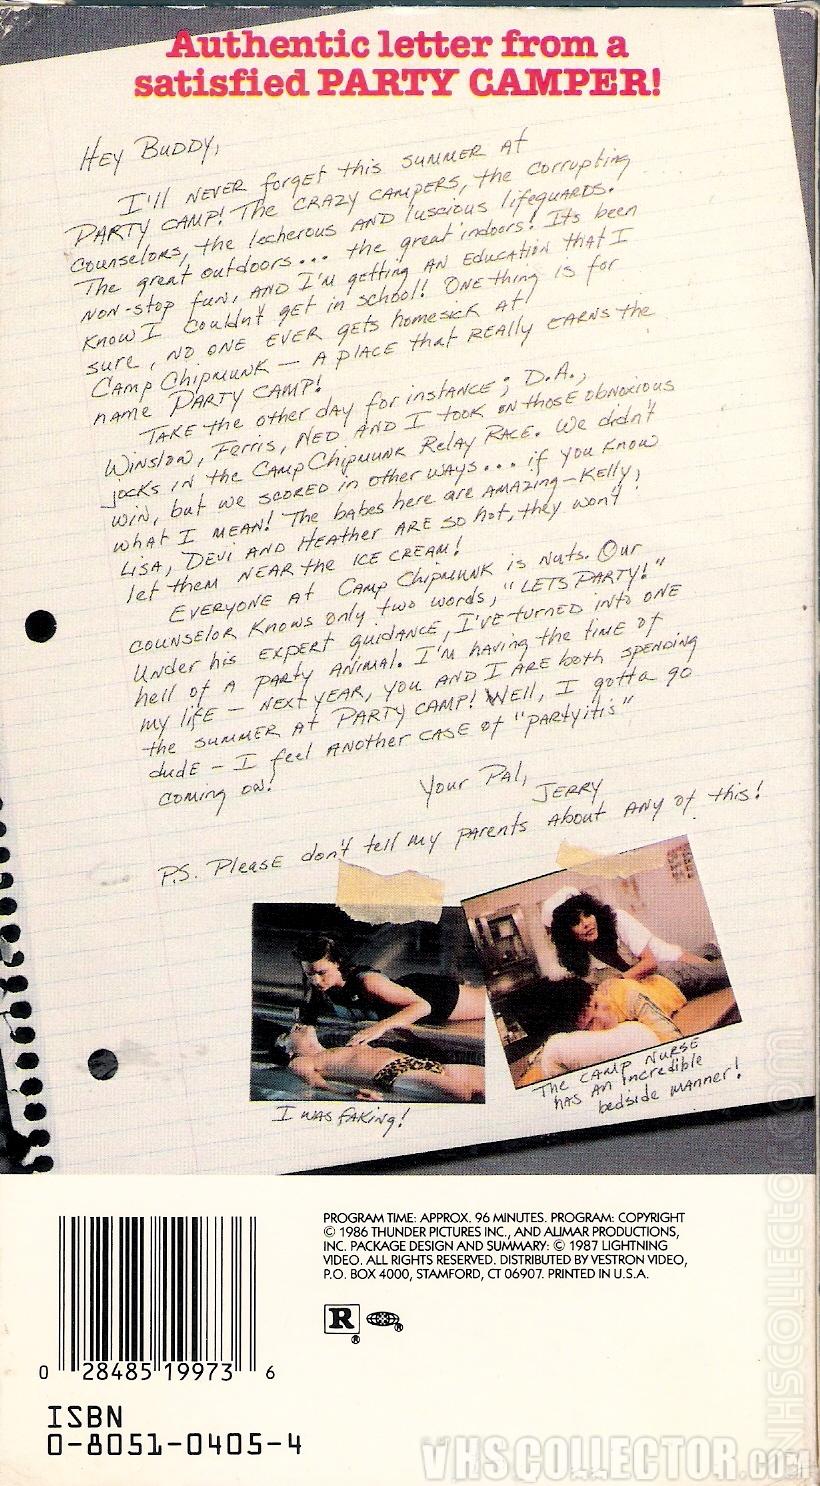 Authentic letter from a
satisfied PARTY CAMPER!
HEY BUDDY,
I'll NEVER forget this SUMMER AT
PARTY CAMP! THE CRAZY CAMPERS, the corrupting
counselors, the lecherous AND luscious lifeguards.
The great outdoors... the great indoors! Its been
NON-stop fun, AND I'm getting AN EDucation that I
Know I couldn't get in school! ONE thing is for
sure, NO ONE EVER gets homesick AT
CAMP Chipmunk — A place that REALLY EARNS the
name PARTY CAMP!
TAKE the other day for instance; D.A.,
Winslow, Ferris, NED AND I TOOK ON those obnoxious
jocks in the Camp Chipmunk Relay Race. We didn't
win, but we scored in other ways... if you know
what I MEAN! The babes here are AMAZING — Kelly,
LISA, DEVI AND HEATHER ARE so hot, they won't
let them NEAR the ICE CREAM!
EVERYONE AT CAMP Chipmunk is nuts. Our
counselor knows only two words, "LETS PARTY!"
Under his EXPERT guidance, I've turned into ONE
hell of A PARTY ANIMAL. I'm having the time of
my life — NEXT YEAR, you AND I ARE both spending
the SUMMER At PARTY CAMP! Well, I gotta go
dude — I feel ANOTHER CASE of "partyitis"
coming on!
Your Pal,
JERRY
P.S. Please don't tell my parents About ANY of this!
I was faking!
The CAMP NURSE
has AN incredible
bedside manner!
PROGRAM TIME: APPROX. 96 MINUTES. PROGRAM: COPYRIGHT
© 1986 THUNDER PICTURES INC., AND ALIMAR PRODUCTIONS,
INC. PACKAGE DESIGN AND SUMMARY: © 1987 LIGHTNING
VIDEO. ALL RIGHTS RESERVED. DISTRIBUTED BY VESTRON VIDEO,
P.O. BOX 4000, STAMFORD, CT 06907. PRINTED IN U.S.A.
R ® ®
0 28485 19973 6
ISBN
0-8051-0405-4
VHSCOLLECTOR.COM
VHSCOLLECTOR.COM